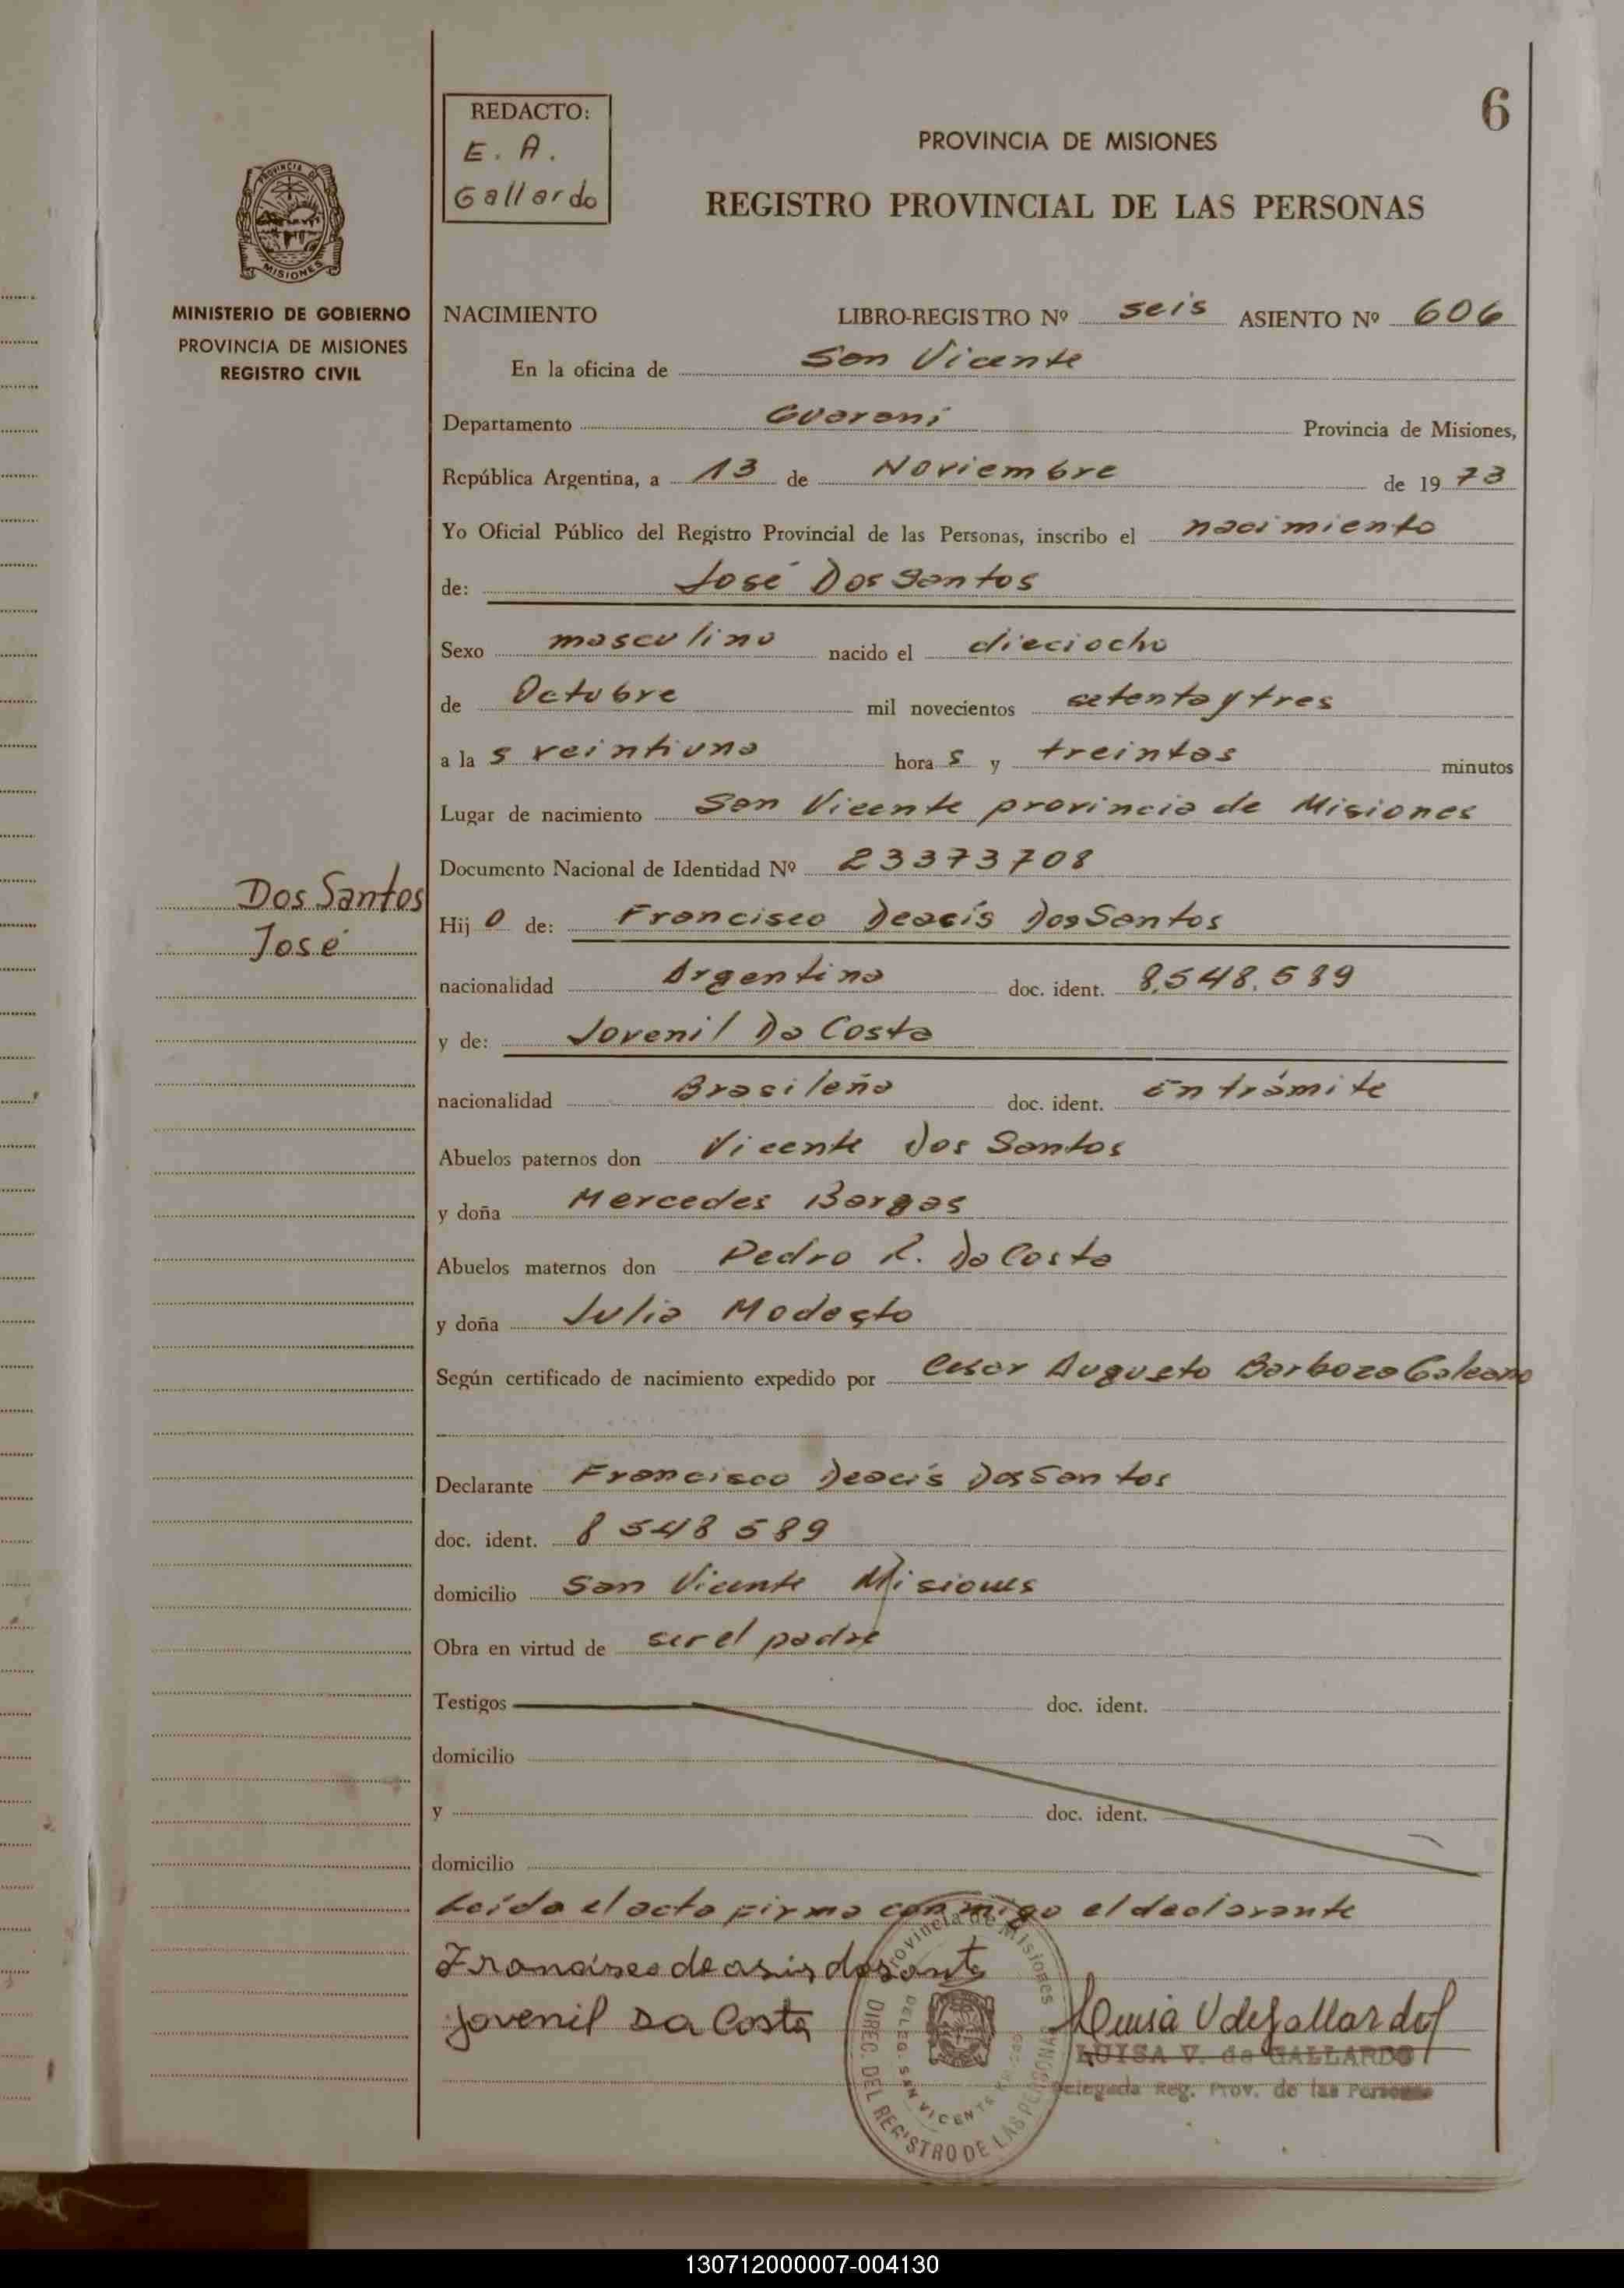 6
REDACTO:
E. A.
Gallardo
PROVINCIA DE MISIONES
REGISTRO PROVINCIAL DE LAS PERSONAS
PROVINCIA DE
MISIONES
MINISTERIO DE GOBIERNO
PROVINCIA DE MISIONES
REGISTRO CIVIL
NACIMIENTO LIBRO-REGISTRO Nº seis ASIENTO Nº 606
En la oficina de San Vicente
Departamento Guaraní Provincia de Misiones,
República Argentina, a 13 de Noviembre de 1973
Yo Oficial Público del Registro Provincial de las Personas, inscribo el nacimiento
de: José Dos Santos
Sexo masculino nacido el dieciocho
de Octubre mil novecientos setenta y tres
a las veintiuna horas y treintas minutos
Lugar de nacimiento San Vicente provincia de Misiones
Documento Nacional de Identidad Nº 23373708
Dos Santos
José
Hijo de: Francisco Deacís Dos Santos
nacionalidad Argentina doc. ident. 8.548.589
y de: Jovenil Da Costa
nacionalidad Brasileña doc. ident. en trámite
Abuelos paternos don Vicente Dos Santos
y doña Mercedes Bargas
Abuelos maternos don Pedro R. Da Costa
y doña Julia Modesto
Según certificado de nacimiento expedido por Cesar Augusto Barboza Galeano
Declarante Francisco Deacís Dos Santos
doc. ident. 8548589
domicilio San Vicente Misiones
Obra en virtud de ser el padre
Testigos doc. ident.
domicilio
y doc. ident.
domicilio
Leída el acta firma conmigo el declarante
Francisco de asis dosante
Jovenil Da Costa
Luisa V de Gallardo
LUISA V. de GALLARDO
Delegada Reg. Prov. de las Personas
Provincia de Misiones
DIREC. DEL REGISTRO DE LAS PERSONAS
DELEG. SAN VICENTE
130712000007-004130